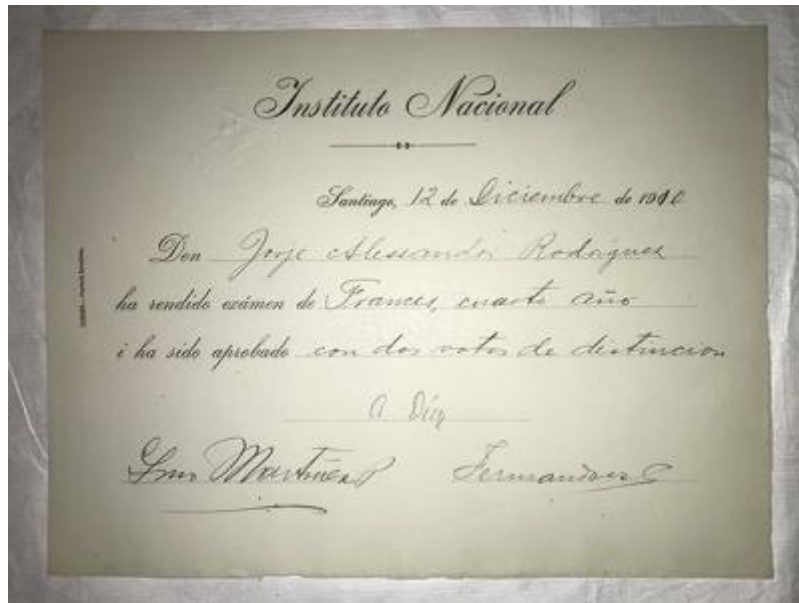 Instituto Nacional
Santiago, 12 de Diciembre de 1910
Don Jorje Alessandri Rodriguez
ha rendido exámen de Frances, cuarto año
i ha sido aprobado con dos votos de distincion
Luis Martinez